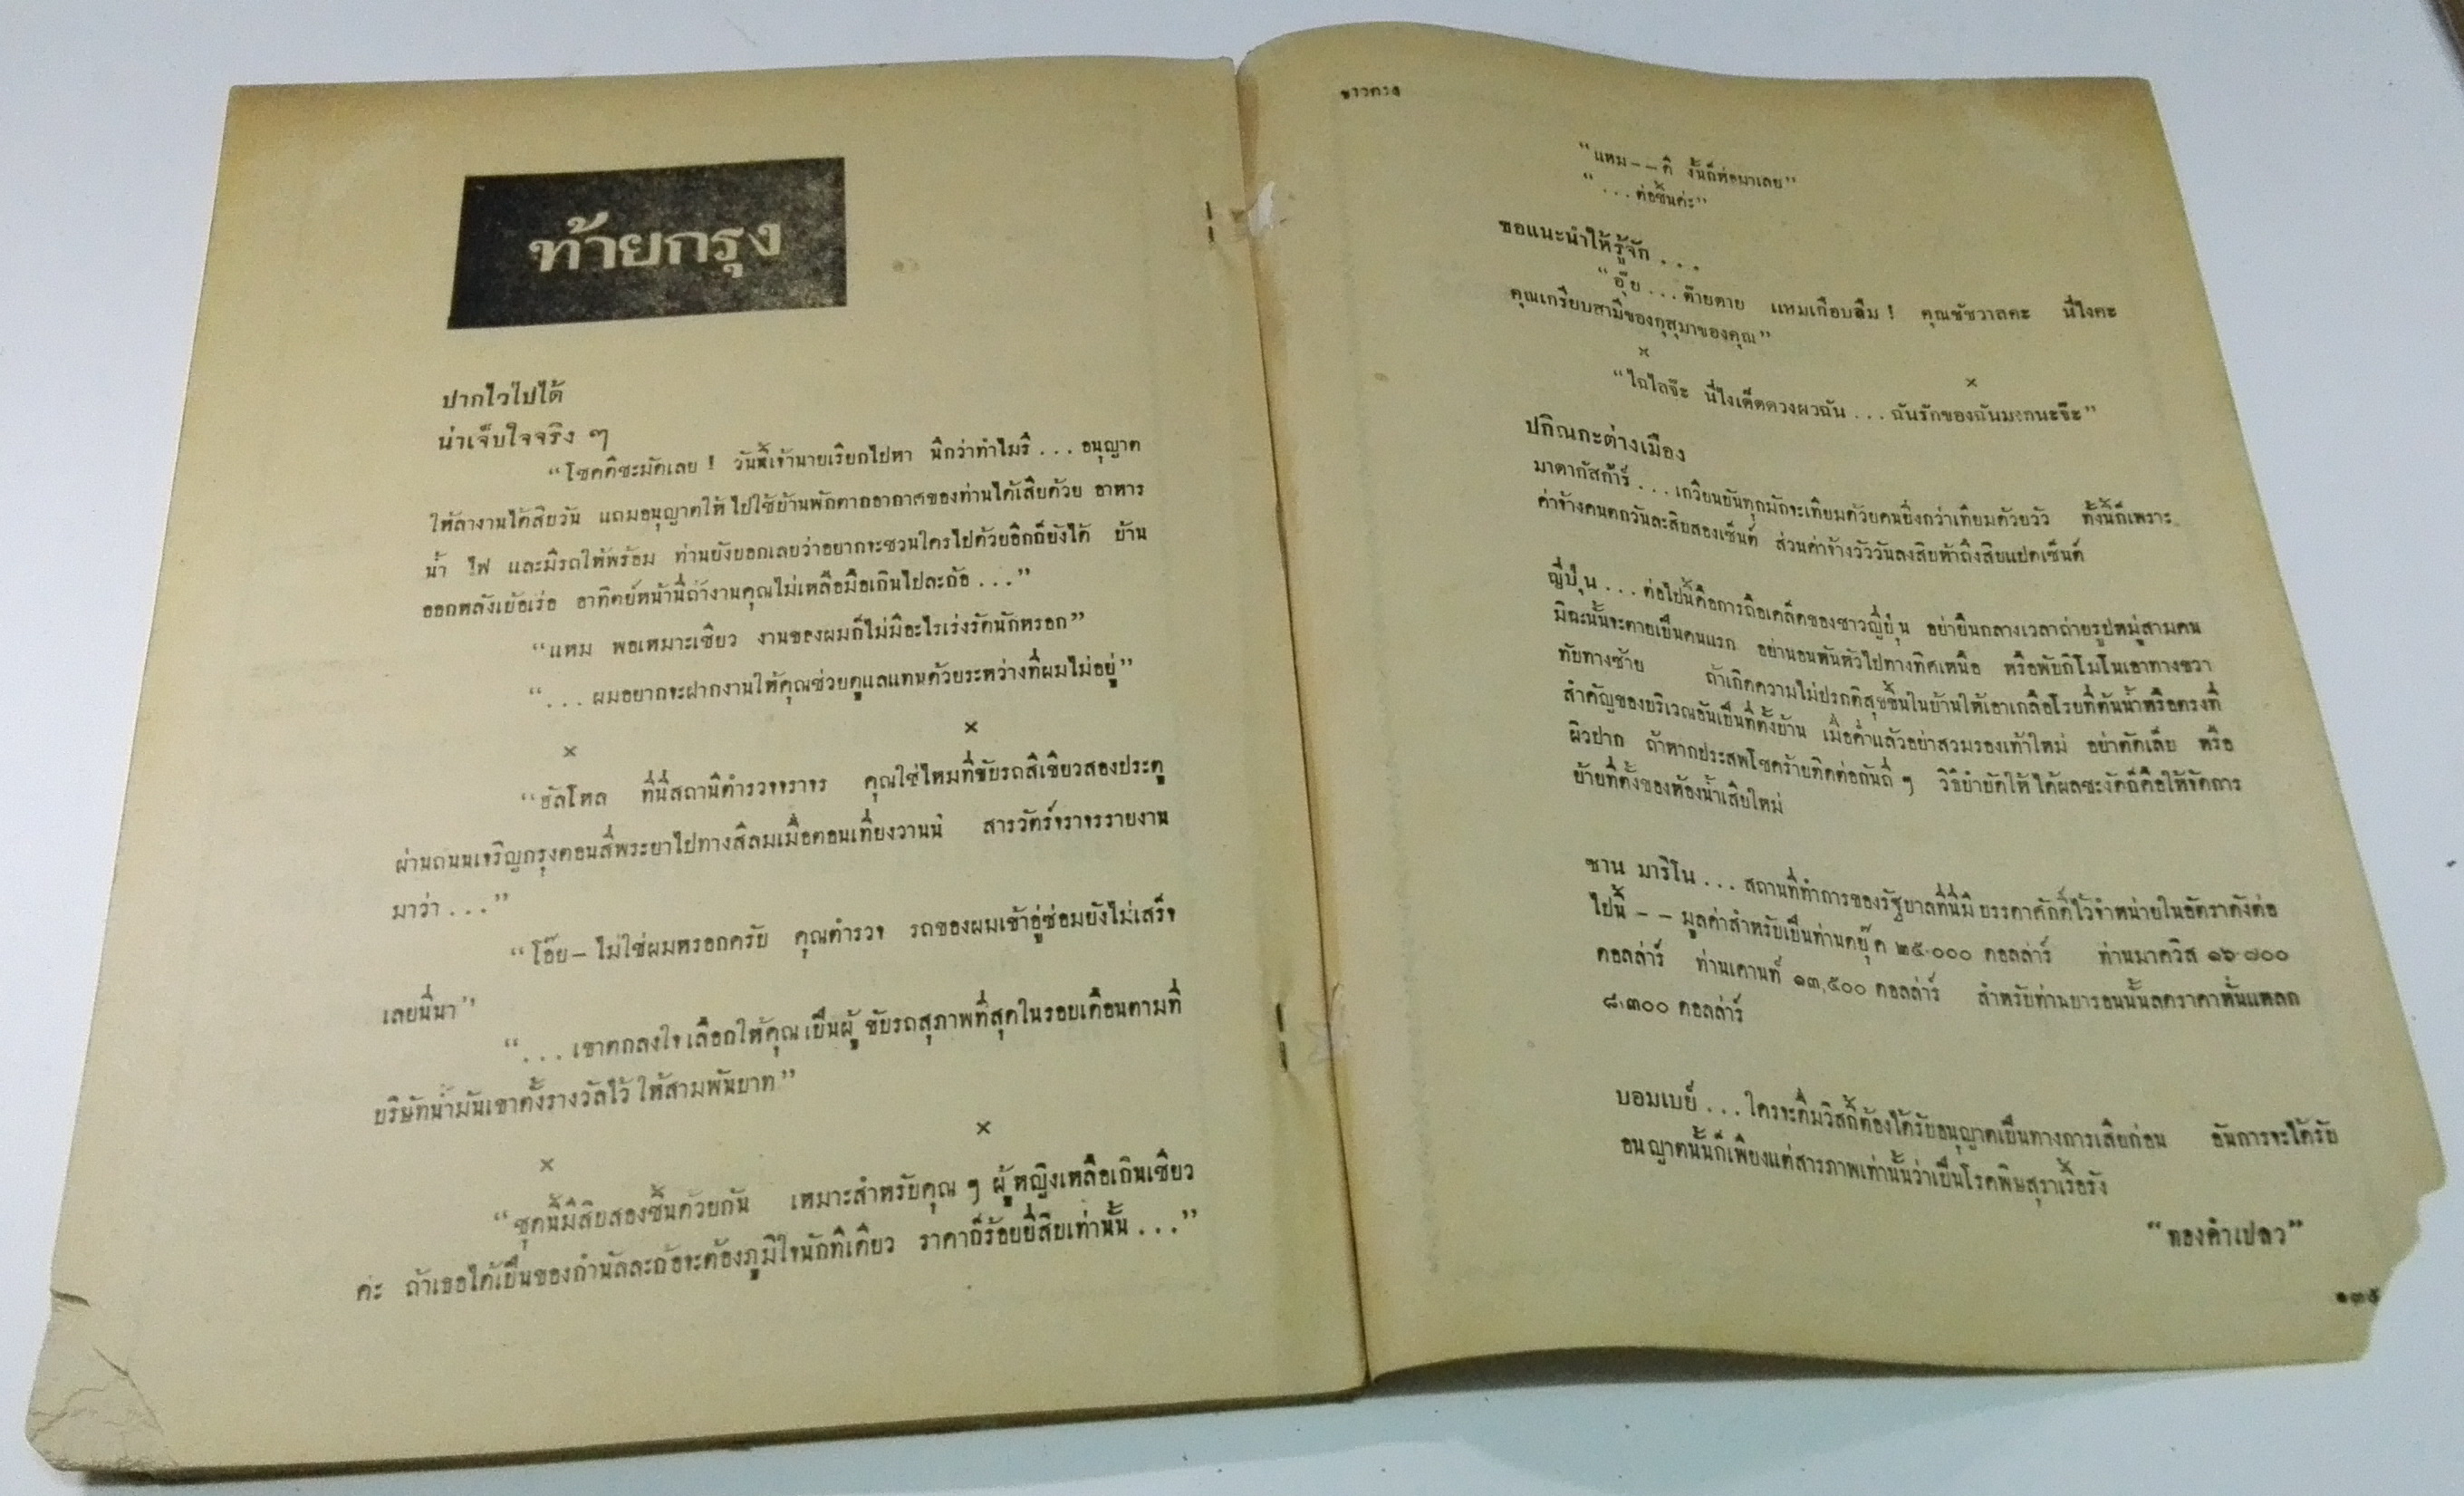 ท้ายกรุง
ปากไวไปได้
น่าเจ็บใจจริง ๆ
“โชคดีชะมัดเลย ! วันนี้เจ้านายเรียกไปหา นึกว่าทำไมรึ . . . อนุญาต
ให้ลางานได้สิบวัน แถมอนุญาตให้ไปใช้บ้านพักตากอากาศของท่านได้เสียด้วย อาหาร
น้ำ ไฟ และมีรถให้พร้อม ท่านยังบอกเลยว่าอยากจะชวนใครไปด้วยอีกก็ยังได้ บ้าน
ออกหลังเบ้อเร่อ อาทิตย์หน้านี้ถ้างานคุณไม่เหลือมือเกินไปละก้อ . . .”
“แหม พอเหมาะเชียว งานของผมก็ไม่มีอะไรเร่งรัดนักหรอก”
“. . . ผมอยากจะฝากงานให้คุณช่วยดูแลแทนด้วยระหว่างที่ผมไม่อยู่”
× ×
“ฮัลโหล ที่นี่สถานีตำรวจจราจร คุณใช่ไหมที่ขับรถสีเขียวสองประตู
ผ่านถนนเจริญกรุงตอนสี่พระยาไปทางสีลมเมื่อตอนเที่ยงวานนี้ สารวัตร์จราจรรายงาน
มาว่า . . .”
“โอ๊ย – ไม่ใช่ผมหรอกครับ คุณตำรวจ รถของผมเข้าอู่ซ่อมยังไม่เสร็จ
เลยนี่นา”
“. . . เขาตกลงใจเลือกให้คุณเป็นผู้ขับรถสุภาพที่สุดในรอบเดือนตามที่
บริษัทน้ำมันเขาตั้งรางวัลไว้ให้สามพันบาท”
× ×
“ชุดนี้มีสิบสองชิ้นด้วยกัน เหมาะสำหรับคุณ ๆ ผู้หญิงเหลือเกินเชียว
ค่ะ ถ้าเธอได้เป็นของกำนัลละก้อจะต้องภูมิใจนักทีเดียว ราคาก็ร้อยยี่สิบเท่านั้น . . .”
ชาวกรุง
“แหม – – ดี งั้นก็ห่อมาเลย”
“ . . . ต่อชิ้นค่ะ”
ขอแนะนำให้รู้จัก . . .
“อุ๊ย . . . ต๊ายตาย แหมเกือบลืม ! คุณชัชวาลคะ นี่ไงคะ
คุณเกรียบสามีของกุสุมาของคุณ”
× ×
“ไฉไลจ๊ะ นี่ไงเด็ดดวงผวฉัน . . . ฉันรักของฉันมากนะจ๊ะ”
ปกิณกะต่างเมือง
มาดากัสก้าร์ . . . เกวียนบันทุกมักจะเทียมด้วยคนยิ่งกว่าเทียมด้วยวัว ทั้งนี้ก็เพราะ
ค่าจ้างคนตกวันละสิบสองเซ็นต์ ส่วนค่าจ้างวัววันละสิบห้าถึงสิบแปดเซ็นต์
ญี่ปุ่น . . . ต่อไปนี้คือการถือเคล็ดของชาวญี่ปุ่น อย่ายืนกลางเวลาถ่ายรูปหมู่สามคน
มิฉะนั้นจะตายเป็นคนแรก อย่านอนหันหัวไปทางทิศเหนือ หรือพับกิโมโนเอาทางขวา
ทับทางซ้าย ถ้าเกิดความไม่ปรกติสุขขึ้นในบ้านให้เอาเกลือโรยที่ต้นน้ำหรือตรงที่
สำคัญของบริเวณอันเป็นที่ตั้งบ้าน เมื่อค่ำแล้วอย่าสวมรองเท้าใหม่ อย่าตัดเล็บ หรือ
ผิวปาก ถ้าหากประสพโชคร้ายติดต่อกันถี่ ๆ วิธีบำบัดให้ได้ผลชะงัดก็คือให้จัดการ
ย้ายที่ตั้งของห้องน้ำเสียใหม่
ซาน มาริโน . . . สถานที่ทำการของรัฐบาลที่นี่มีบรรดาศักดิ์ไว้จำหน่ายในอัตราดังต่อ
ไปนี้ – – มูลค่าสำหรับเป็นท่านดยุ๊ค ๒๕.๐๐๐ ดอลล่าร์ ท่านมาควิส ๑๖.๗๐๐
ดอลล่าร์ ท่านเคานท์ ๑๓,๕๐๐ ดอลล่าร์ สำหรับท่านบารอนนั้นลดราคาหั่นแหลก
๘.๓๐๐ ดอลล่าร์
บอมเบย์ . . . ใครจะดื่มวิสกี้ต้องได้รับอนุญาตเป็นทางการเสียก่อน อันการจะได้รับ
อนุญาตนั้นก็เพียงแต่สารภาพเท่านั้นว่าเป็นโรคพิษสุราเรื้อรัง
“ทองคำเปลว”
๑๓๕